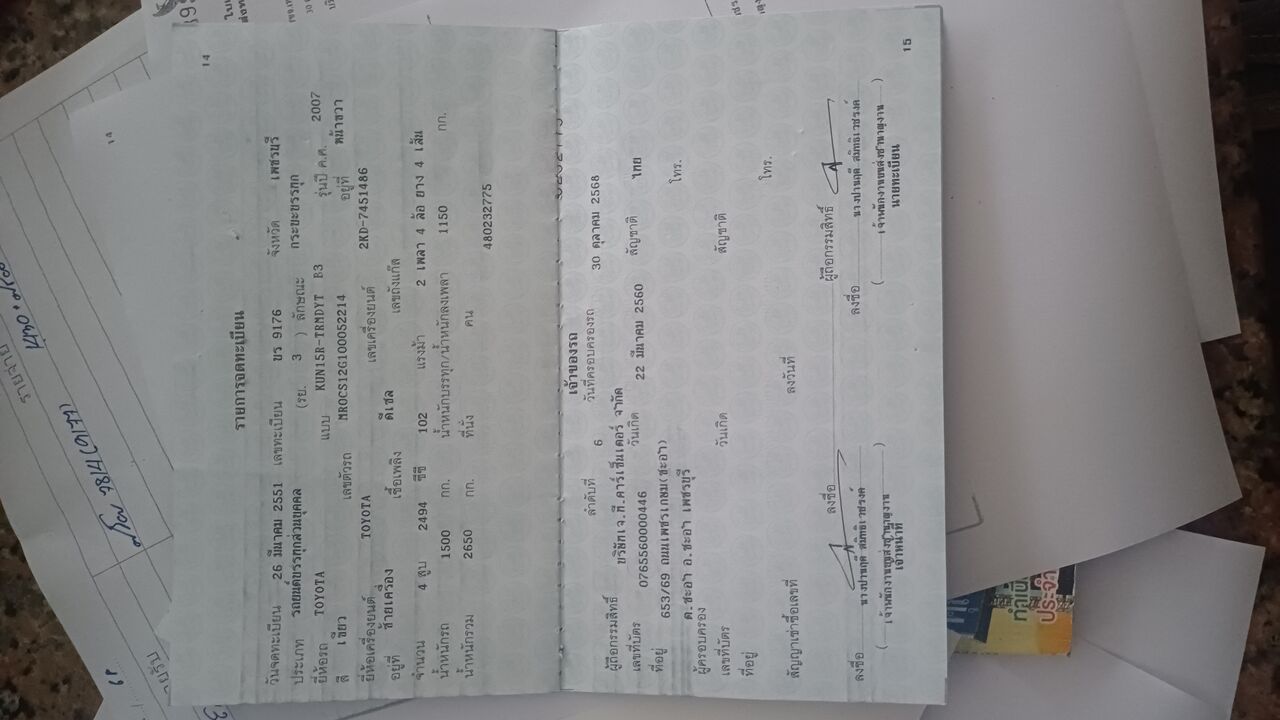 14
รายการจดทะเบียน
วันจดทะเบียน 26 มีนาคม 2551 เลขทะเบียน ขร 9176 จังหวัด เพชรบุรี
ประเภท รถยนต์บรรทุกส่วนบุคคล (รย. 3 ) ลักษณะ กระบะบรรทุก
ยี่ห้อรถ TOYOTA แบบ KUN15R-TRMDYT B3 รุ่นปี ค.ศ. 2007
สี เขียว เลขตัวรถ MROCS12G100052214 อยู่ที่ หน้าขวา
ยี่ห้อเครื่องยนต์ TOYOTA เลขเครื่องยนต์ 2KD-7451486
อยู่ที่ ซ้ายเครื่อง เชื้อเพลิง ดีเซล เลขถังแก๊ส
จำนวน 4 สูบ 2494 ซีซี 102 แรงม้า 2 เพลา 4 ล้อ ยาง 4 เส้น
น้ำหนักรถ 1500 กก. น้ำหนักบรรทุก/น้ำหนักลงเพลา 1150 กก.
น้ำหนักรวม 2650 กก. ที่นั่ง คน
480232775
เจ้าของรถ
ลำดับที่ 6 วันที่ครอบครองรถ 30 ตุลาคม 2568
ผู้ถือกรรมสิทธิ์ บริษัทเจ.ที.คาร์เซ็นเตอร์ จำกัด
เลขที่บัตร 0765560000446 วันเกิด 22 มีนาคม 2560 สัญชาติ ไทย
ที่อยู่ 653/69 ถนนเพชรเกษม(ชะอำ) โทร.
ต.ชะอำ อ.ชะอำ เพชรบุรี
ผู้ครอบครอง
เลขที่บัตร วันเกิด สัญชาติ
ที่อยู่ โทร.
สัญญาเช่าซื้อเลขที่ ลงวันที่
ลงชื่อ ผู้ถือกรรมสิทธิ์
ลงชื่อ ลงชื่อ
นางปานฤดี สมิทธิเวชรงค์ นางปานฤดี สมิทธิเวชรงค์
( เจ้าพนักงานขนส่งชำนาญงาน ) ( เจ้าพนักงานขนส่งชำนาญงาน )
เจ้าหน้าที่ นายทะเบียน
15
14
รายจ่าย